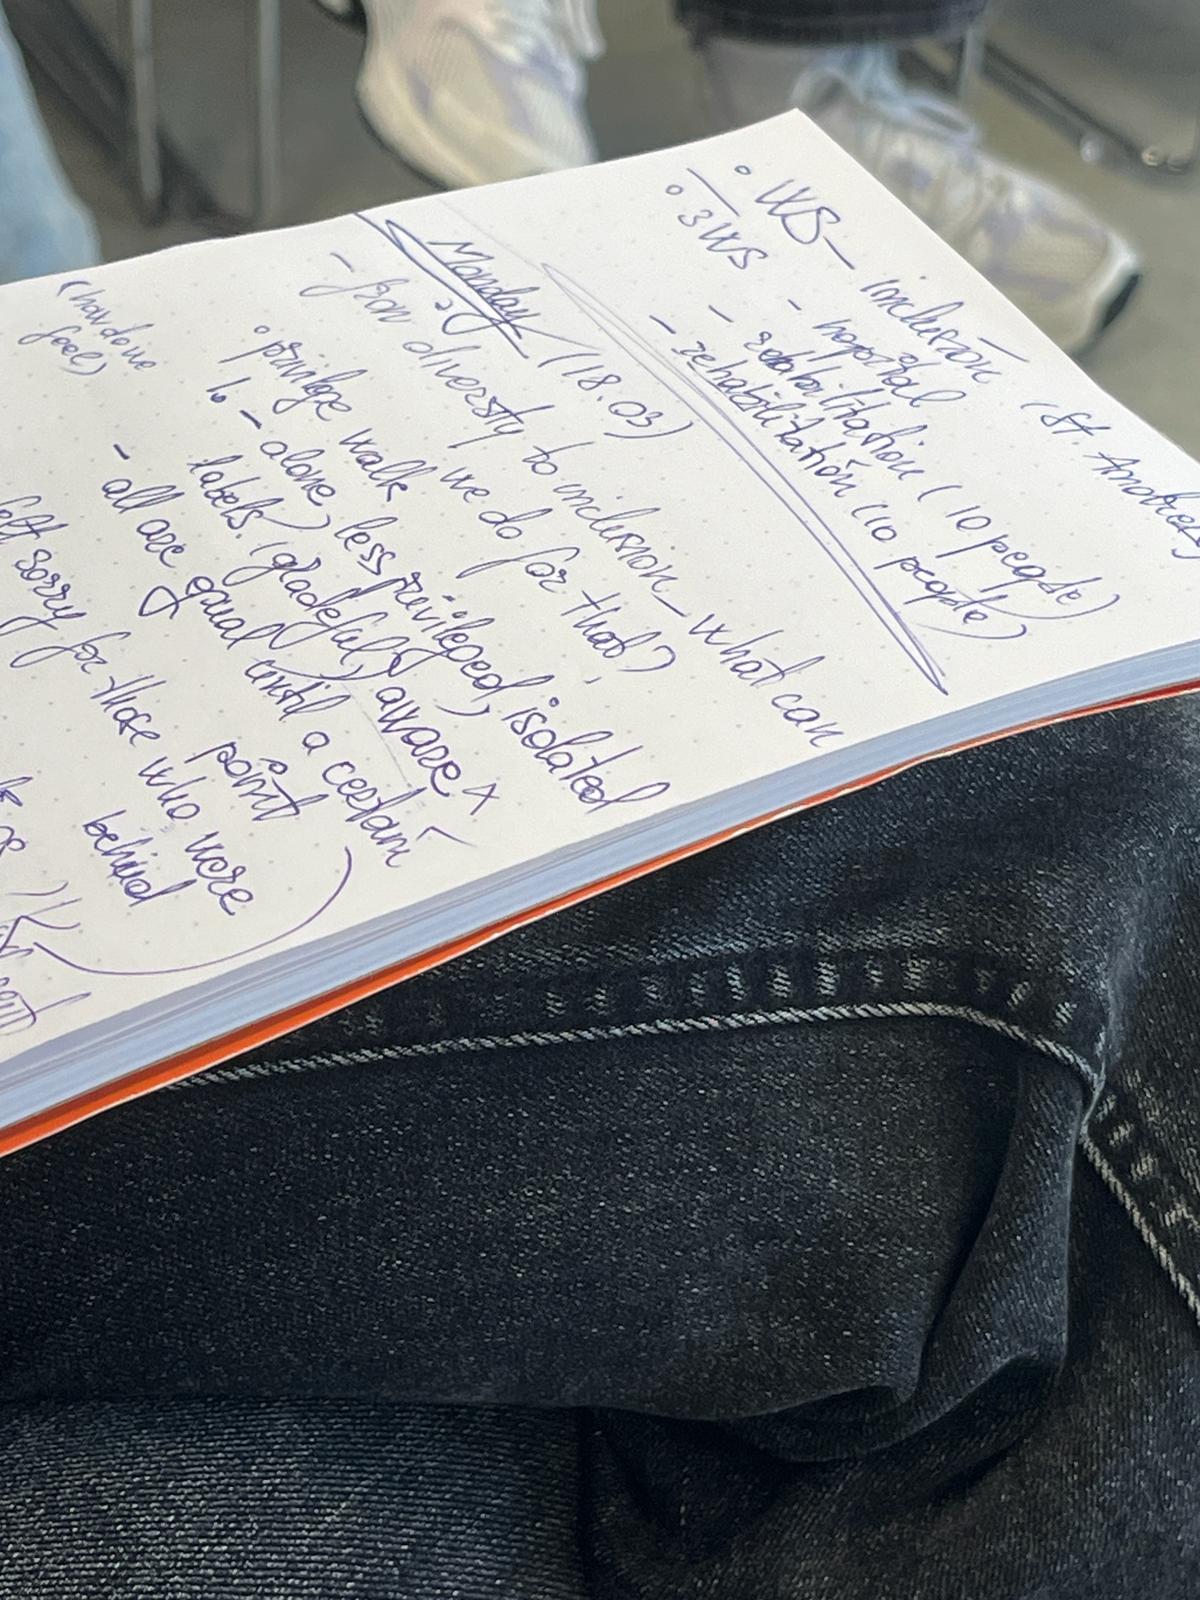 ° WS – inclusion (St.
° 3 WS – hospital
– rehabilitation (10 people)
– rehabilitation (10 people)
Monday (18.03)
– from diversity to inclusion – what can
we do for that?
° privilege walk
– alone, less privileged, isolated
labels. (gradeful), aware
– all are equal until a certain
point
felt sorry for those who were
behind
(how do we
feel)